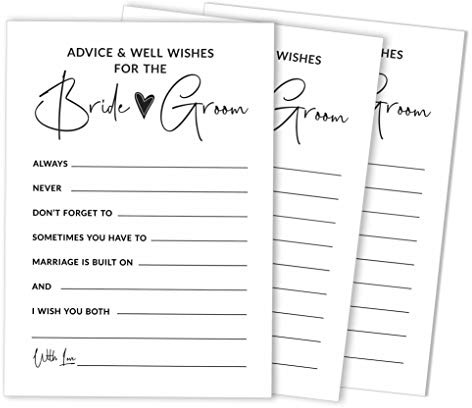 ADVICE & WELL WISHES
FOR THE
Bride ♥ Groom
ALWAYS
NEVER
DON'T FORGET TO
SOMETIMES YOU HAVE TO
MARRIAGE IS BUILT ON
AND
I WISH YOU BOTH
With Love
WISHES
Groom
WISHES
Groom